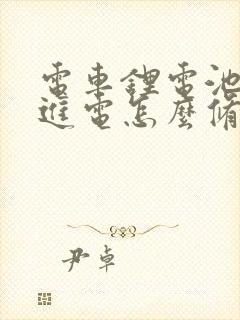 電車鋰電池
進電怎麼備
尹卓